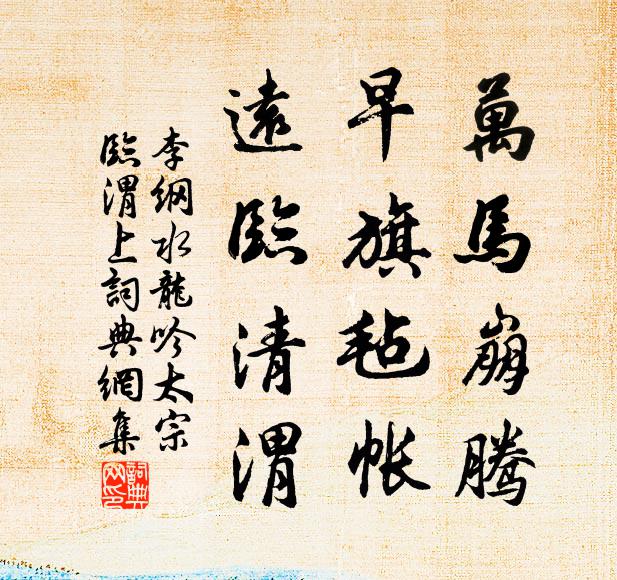 萬馬崩騰
早旗毡帳
遠臨清渭
李綱水龍吟太宗
臨渭上詞典網集
詞典网印